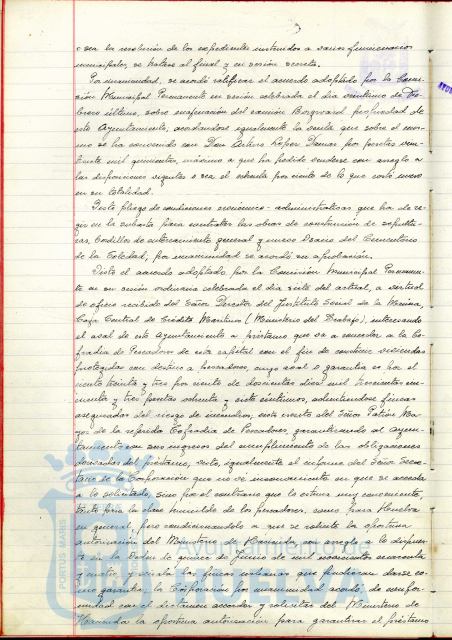 o sea la resolución de los expedientes instruidos a varios funcionarios
municipales, se tratase al final y en sesión secreta.
Por unanimidad, se acordó ratificar el acuerdo adoptado por la Comi-
sión Municipal Permanente en sesión celebrada el día veintiuno de Fe-
brero último, sobre enajenación del camión Borgward propiedad de
este Ayuntamiento, acordándose igualmente la venta que sobre el mis-
mo se ha convenido con Don Arturo López Damas por pesetas vein-
te mil quinientas, máximo a que ha podido venderse con arreglo a
las disposiciones vigentes o sea el ochenta por ciento de lo que costó nuevo
en su totalidad.
Visto pliego de condiciones económico-administrativas que ha de re-
gir en la subasta para contratar las obras de construcción de sepultu-
ras, bordillos de autocerramiento general y nuevo Osario del Cementerio
de la Soledad, por unanimidad se acordó su aprobación.
Visto el acuerdo adoptado por la Comisión Municipal Permanen-
te en sesión ordinaria celebrada el día siete del actual, a virtud
de oficio recibido del Señor Director del Instituto Social de la Marina,
Caja Central de Crédito Marítimo (Ministerio del Trabajo), interesando
el aval de este Ayuntamiento a préstamo que va a conceder a la Co-
fradía de Pescadores de esta capital con el fin de construir viviendas
protegidas con destino a pescadores, cuyo aval o garantía es por el
ciento treinta y tres por ciento de doscientas diez mil trescientas cin-
cuenta y tres pesetas ochenta y siete céntimos, admitiéndose fincas
aseguradas del riesgo de incendios, visto escrito del Señor Patrón Ma-
yor de la referida Cofradía de Pescadores, garantizando al Ayun-
tamiento con sus ingresos del incumplimiento de las obligaciones
dimanadas del préstamo, visto, igualmente el informe del Señor Secre-
tario de la Corporación que no ve inconveniente en que se acceda
a lo solicitado, sino por el contrario que lo estima muy conveniente,
tanto para la clase humilde de los pescadores, como para Huelva
en general, pero condicionándolo a que se solicite la oportuna
autorización del Ministerio de Hacienda, con arreglo a lo dispues-
to en la Orden de quince de Junio de mil novecientos cuarenta
y cuatro, y vistas las fincas urbanas que pudieran darse co-
mo garantía, la Corporación por unanimidad acordó, de confor-
midad con el dictamen acceder y solicitar del Ministerio de
Hacienda la oportuna autorización para garantizar el préstamo
PORTUS MARIS